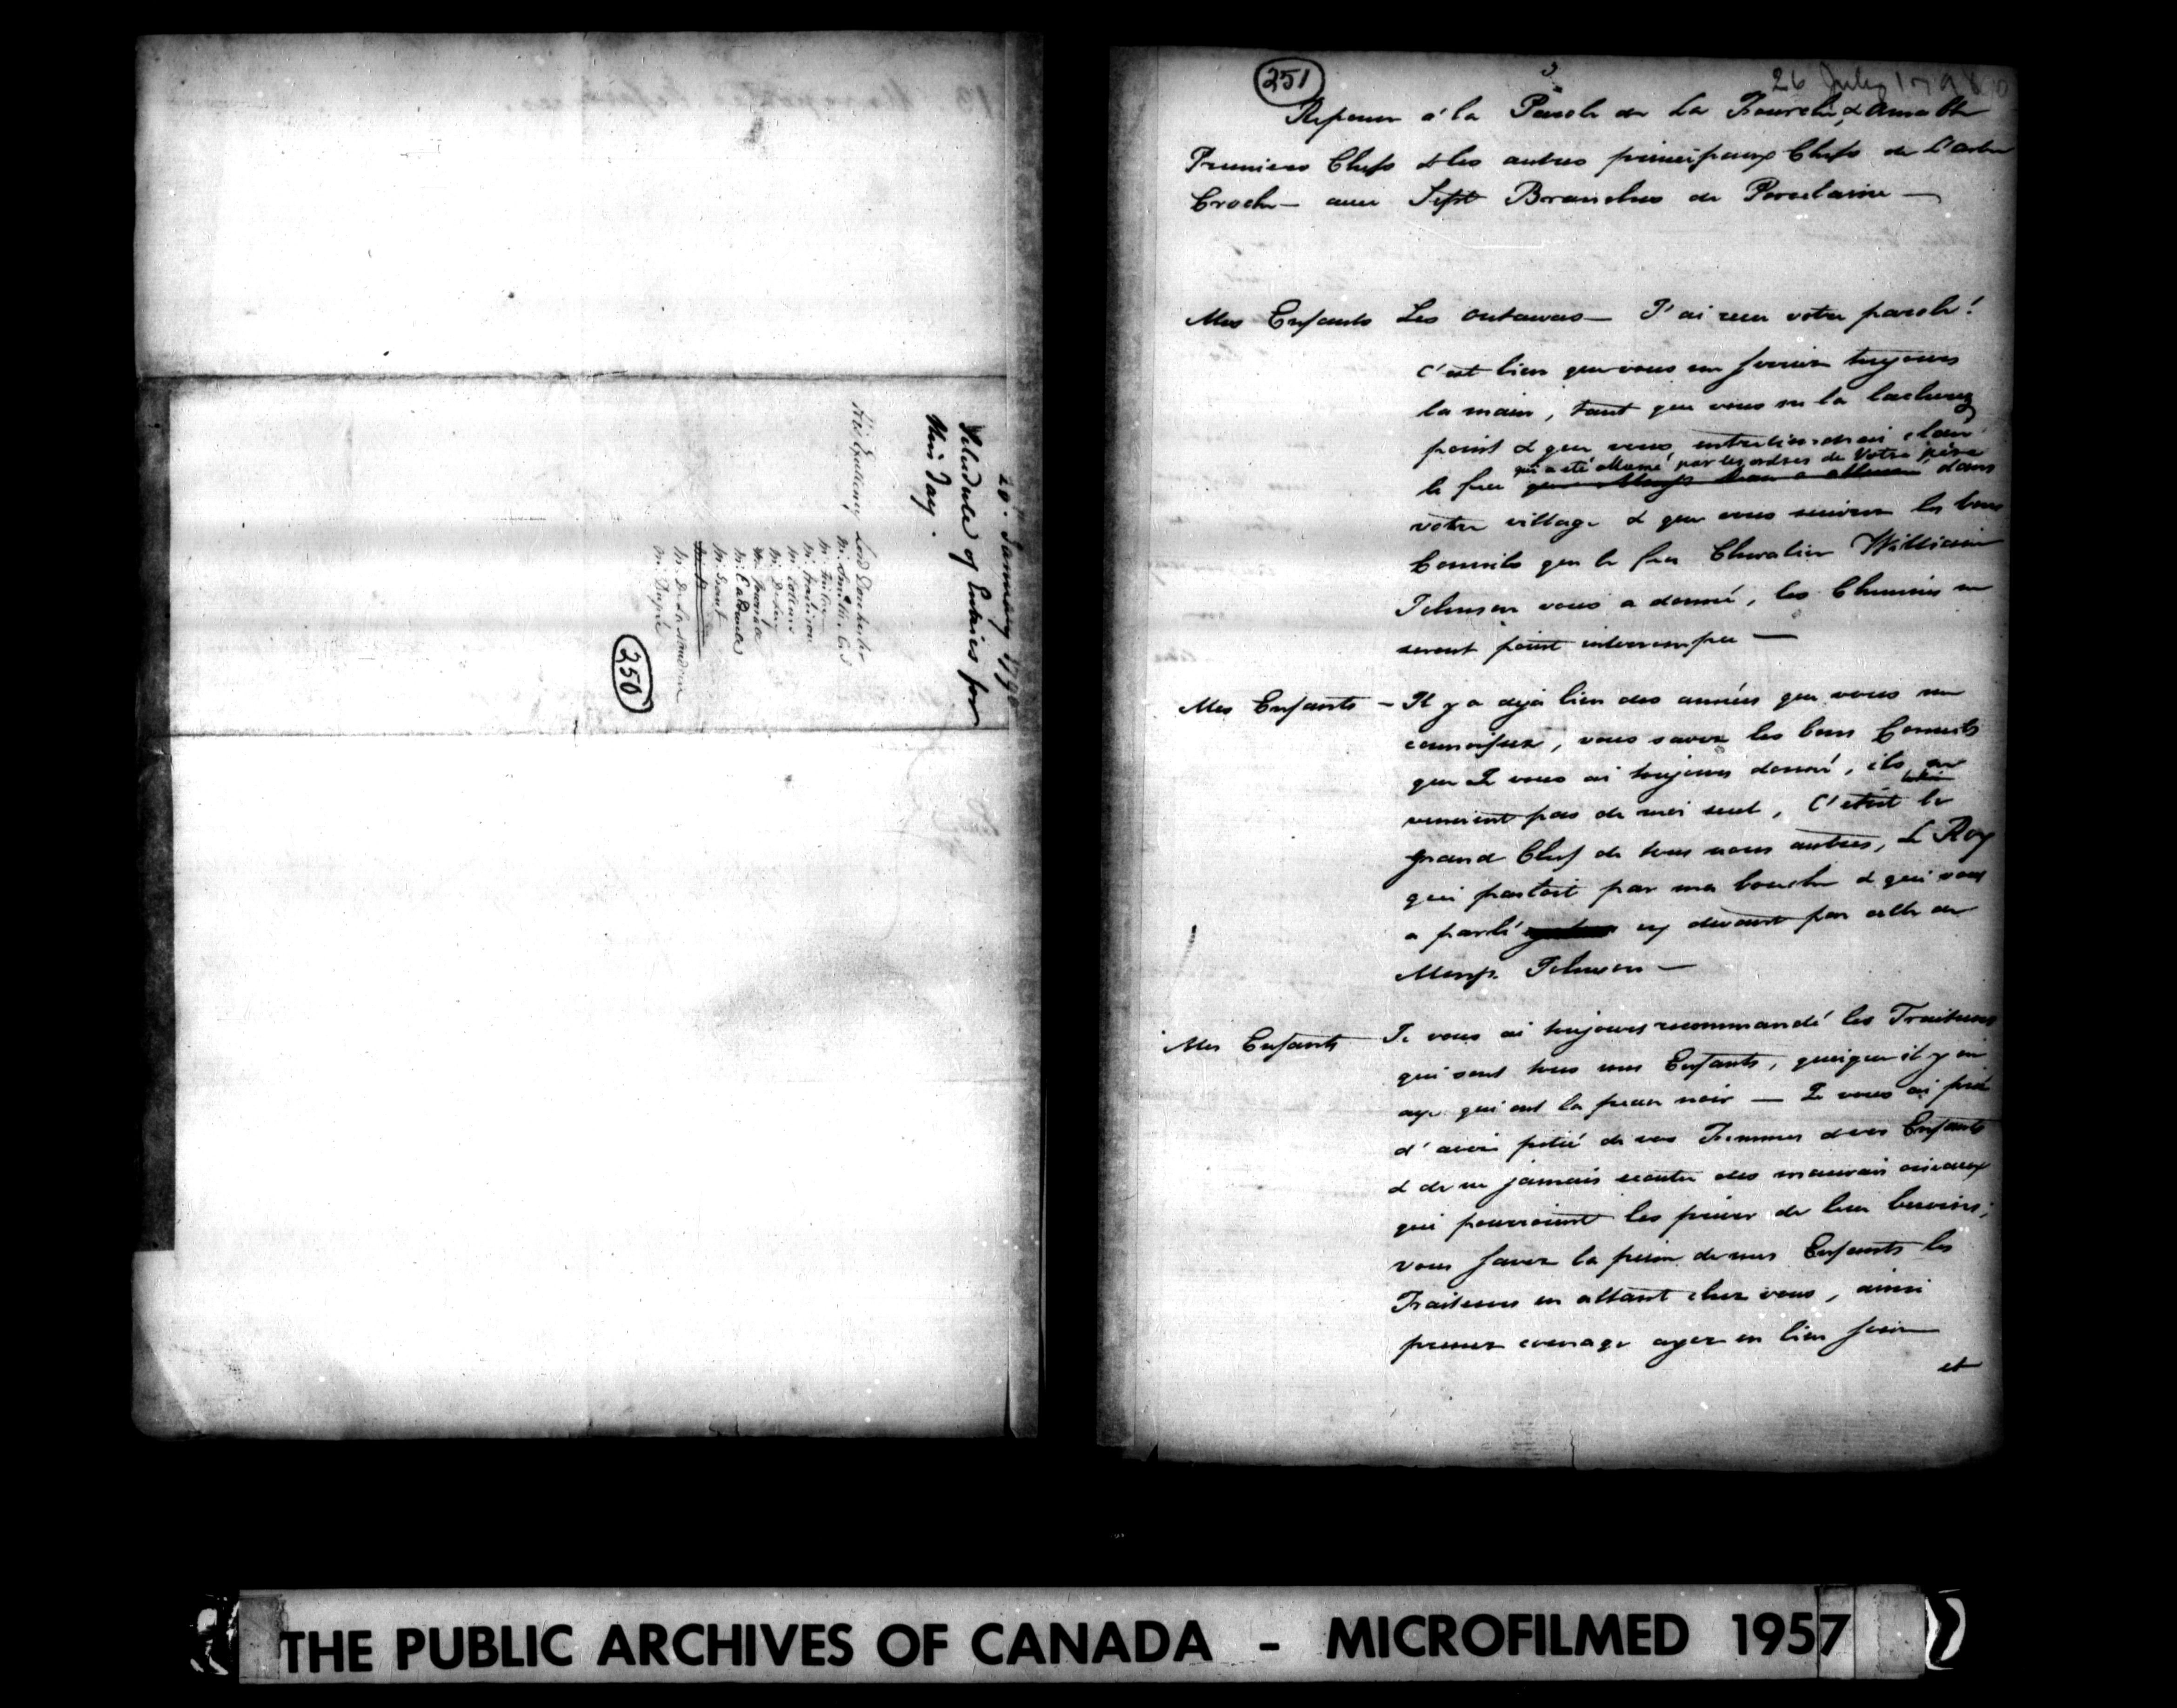 20. January 1790
Schedule of Entries for
this Day.
His Excellency Lord Dorchester
Mr. Smith C.J.
Mr. Finlay
Mr. Harrison
Mr. Collins
Mr. De Lery
Mr. Caldwell
Mr. Grant
Mr. Dupré
250
251
26 July 1790
Reponse á la Parole de La Fourche, &
Premiers Chefs & les autres principaux Chefs de L'arbre
Croche — avec Sept Branches de Porcelaine —
Mes Enfants Les Outawas — J'ai reçu votre parole!
C'est bien que vous me serriez toujours
la main, tant que vous ne la lacherez
point & que vous entretiendrai clair
qui a été allumé par les ordres de Votre père
le feu dans
votre village & que vous suivrez les bons
Conseils que le feu Chevalier William
Johnson vous a donné, les Chemins ne
seront point interrompu —
Mes Enfants — Il y a deja bien des années que vous me
connoissez, vous savez les bons Conseils
que Je vous ai toujours donné, ils ne
venoient pas de moi seul, C'etoit le
grand Chef de tous nous autres, Le Roy
qui parloit par ma bouche & qui vous
a parlé cy devant par celle de
Monsr. Johnson —
Mes Enfants Je vous ai toujours recommandé les Traiteurs
qui sont tous mes Enfants, quoique il y en
aye qui ont la peau noir — Je vous ai prié
d'avoir pitié de vos Femmes & vos Enfants
& de ne jamais ecouter des mauvais oiseaux
qui pourroient les priver de leur besoins;
vous savez la peine de mes Enfants les
Traiteurs en allant chez vous, ainsi
prenez courage ayez en bien soin
et
THE PUBLIC ARCHIVES OF CANADA - MICROFILMED 1957